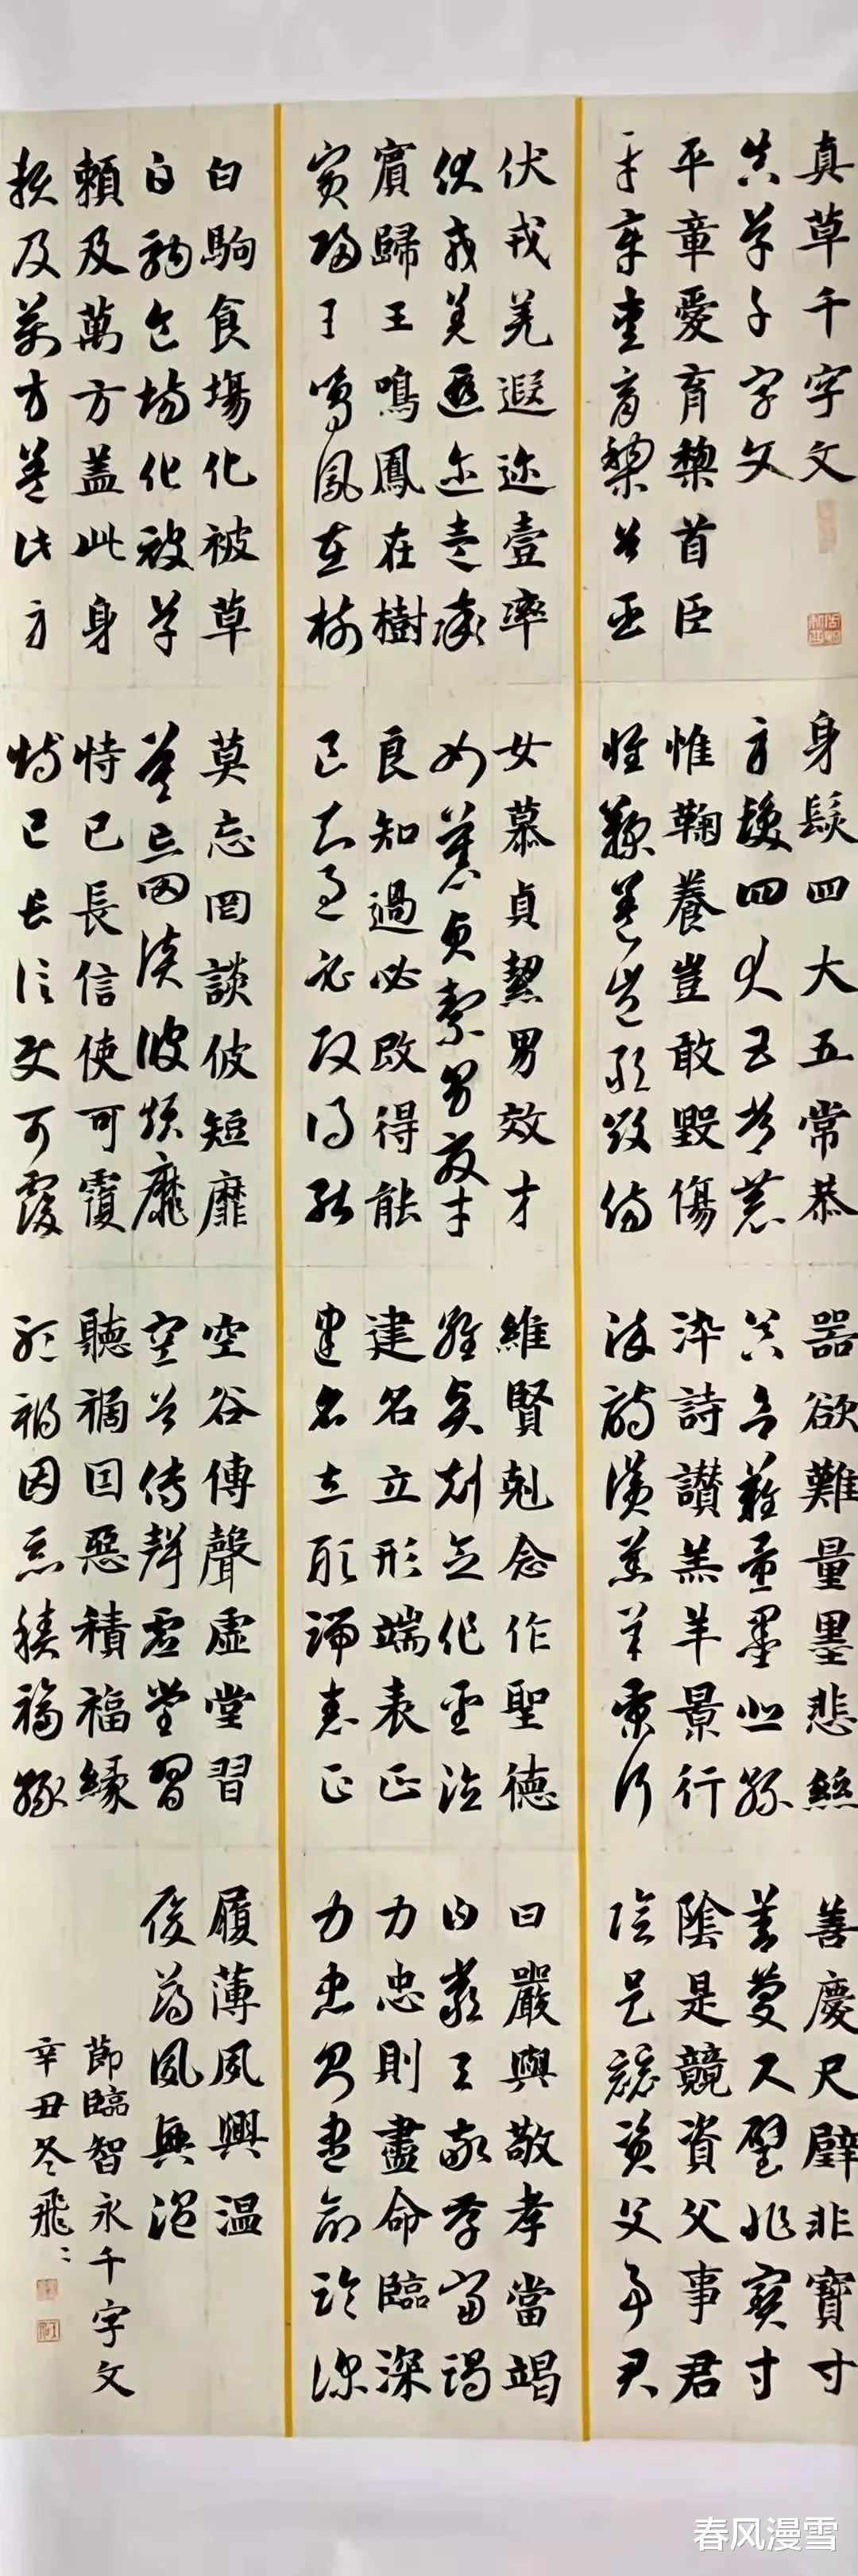 真草千字文
真草千字文
平章愛育黎首臣
平章愛育黎首臣
伏戎羌遐迩壹率
伏戎羌遐迩壹率
賓歸王鳴鳳在樹
賓歸王鳴鳳在樹
白駒食場化被草
白駒食場化被草
賴及萬方盖此身
賴及萬方盖此身
身髮四大五常恭
身髮四大五常恭
惟鞠養豈敢毀傷
惟鞠養豈敢毀傷
女慕貞絜男效才
女慕貞絜男效才
良知過必改得能
良知過必改得能
莫忘罔談彼短靡
莫忘罔談彼短靡
恃己長信使可覆
恃己長信使可覆
器欲難量墨悲絲
器欲難量墨悲絲
染詩讚羔羊景行
染詩讚羔羊景行
維賢剋念作聖德
維賢剋念作聖德
建名立形端表正
建名立形端表正
空谷傳聲虛堂習
空谷傳聲虛堂習
聽禍因惡積福緣
聽禍因惡積福緣
善慶尺璧非寶寸
善慶尺璧非寶寸
陰是競資父事君
陰是競資父事君
曰嚴與敬孝當竭
曰嚴與敬孝當竭
力忠則盡命臨深
力忠則盡命臨深
履薄夙興温
履薄夙興温
節臨智永千字文
辛丑冬飛〻
春风漫雪